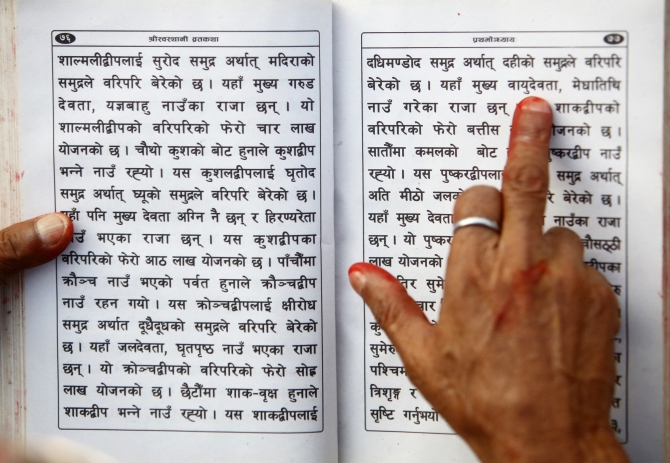 ७६ श्रीस्वस्थानी व्रतकथा
शाल्मलीद्वीपलाई सुरोद समुद्र अर्थात् मदिराको
समुद्रले वरिपरि बेरेको छ । यहाँ मुख्य गरुड
देवता, यज्ञबाहु नाउँका राजा छन् । यो
शाल्मलीद्वीपको वरिपरिको फेरो चार लाख
योजनको छ । चौथो कुशको बोट हुनाले कुशद्वीप
भन्ने नाउँ रह्यो । यस कुशलद्वीपलाई घृतोद
समुद्र अर्थात् घ्यूको समुद्रले वरिपरि बेरेको छ ।
पनि मुख्य देवता अग्नि नै छन् र हिरण्यरेता
नाउँ भएका राजा छन् । यस कुशद्वीपका
वरिपरिको फेरो आठ लाख योजनको छ । पाँचौँमा
क्रौञ्च नाउँ भएको पर्वत हुनाले क्रौञ्चद्वीप
नाउँ रहन गयो । यस क्रोञ्चद्वीपलाई क्षीरोध
समुद्र अर्थात दूधैदूधको समुद्रले वरिपरि बेरेको
छ । यहाँ जलदेवता, घृतपृष्ठ नाउँ भएका राजा
छन् । यो क्रोञ्चद्वीपको वरिपरिको फेरो सोह्र
लाख योजनको छ । छैटौँमा शाक-वृक्ष हुनाले
शाकद्वीप भन्ने नाउँ रह्यो । यस शाकद्वीपलाई
प्रथमोऽध्याय ७७
दधिमण्डोद समुद्र अर्थात् दहीको समुद्रले वरिपरि
बेरेको छ । यहाँ मुख्य वायुदेवता, मेधातिथि
नाउँ गरेका राजा छन् शाकद्वीपको
वरिपरिको फेरो बत्तीस योजनको छ ।
सातौँमा कमलको बोट पुष्करद्वीप नाउँ
रह्यो । यस पुष्करद्वीपलाई समुद्र अर्थात्
अति मीठो जलको छ ।
यहाँ मुख्य देवता नाउँका राजा
छन् । यो चौसठ्ठी
लाख
सुमेरु
पश्चिम
त्रिशृङ्ग र
सृष्टि गर्नुभयो